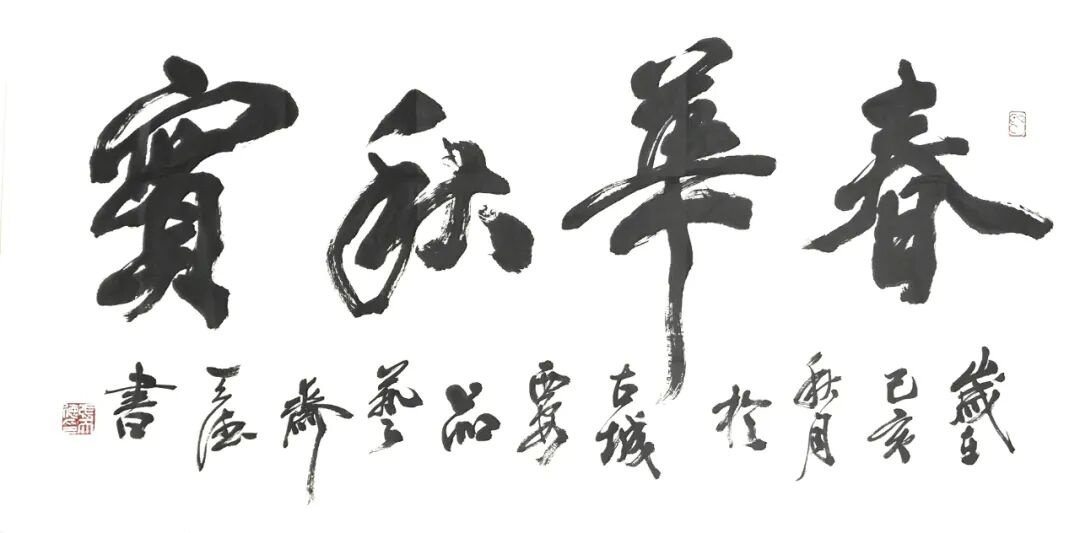 春華秋實
歲在己亥秋月於古城西安品藝齋天德書